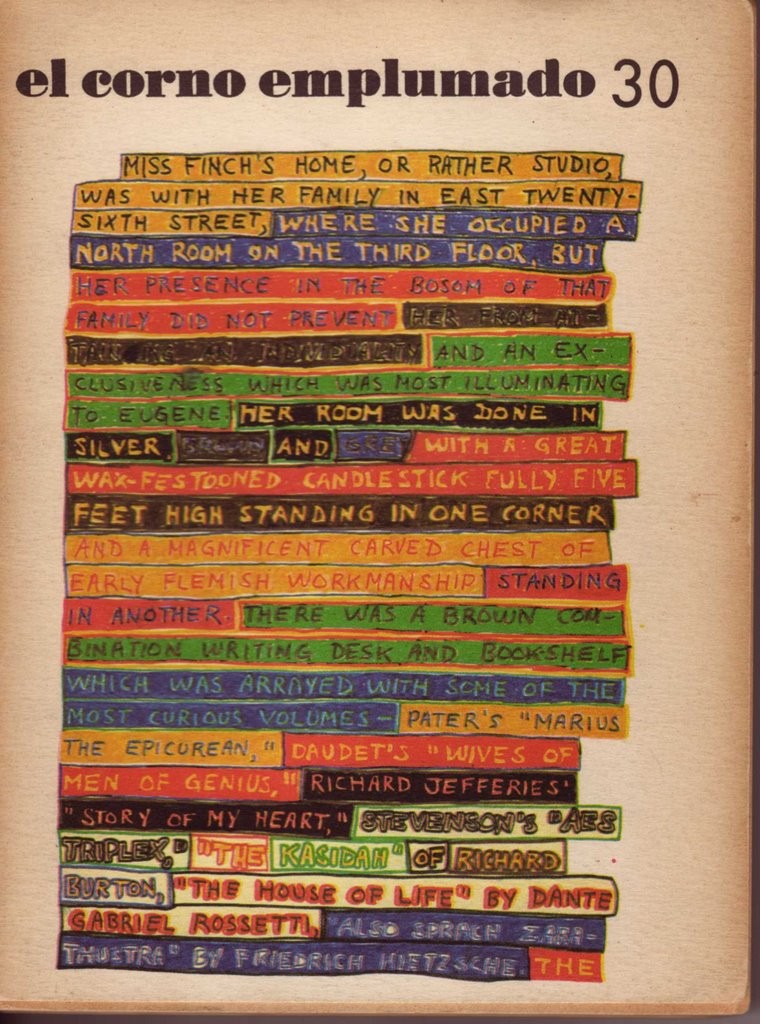 el corno emplumado 30
MISS FINCH'S HOME, OR RATHER STUDIO,
WAS WITH HER FAMILY IN EAST TWENTY-
SIXTH STREET, WHERE SHE OCCUPIED A
NORTH ROOM ON THE THIRD FLOOR, BUT
HER PRESENCE IN THE BOSOM OF THAT
FAMILY DID NOT PREVENT HER FROM AT-
TAINING AN INDIVIDUALITY AND AN EX-
CLUSIVENESS WHICH WAS MOST ILLUMINATING
TO EUGENE. HER ROOM WAS DONE IN
SILVER, BROWN AND GREY WITH A GREAT
WAX-FESTOONED CANDLESTICK FULLY FIVE
FEET HIGH STANDING IN ONE CORNER
AND A MAGNIFICENT CARVED CHEST OF
EARLY FLEMISH WORKMANSHIP STANDING
IN ANOTHER. THERE WAS A BROWN COM-
BINATION WRITING DESK AND BOOK-SHELF
WHICH WAS ARRAYED WITH SOME OF THE
MOST CURIOUS VOLUMES- PATER'S "MARIUS
THE EPICUREAN," DAUDET'S "WIVES OF
MEN OF GENIUS," RICHARD JEFFERIES'
"STORY OF MY HEART," STEVENSON'S "AES
TRIPLEX," "THE KASIDAH" OF RICHARD
BURTON, "THE HOUSE OF LIFE" BY DANTE
GABRIEL ROSSETTI, "ALSO SPRACH ZARA-
THUSTRA" BY FRIEDRICH NIETZSCHE. THE